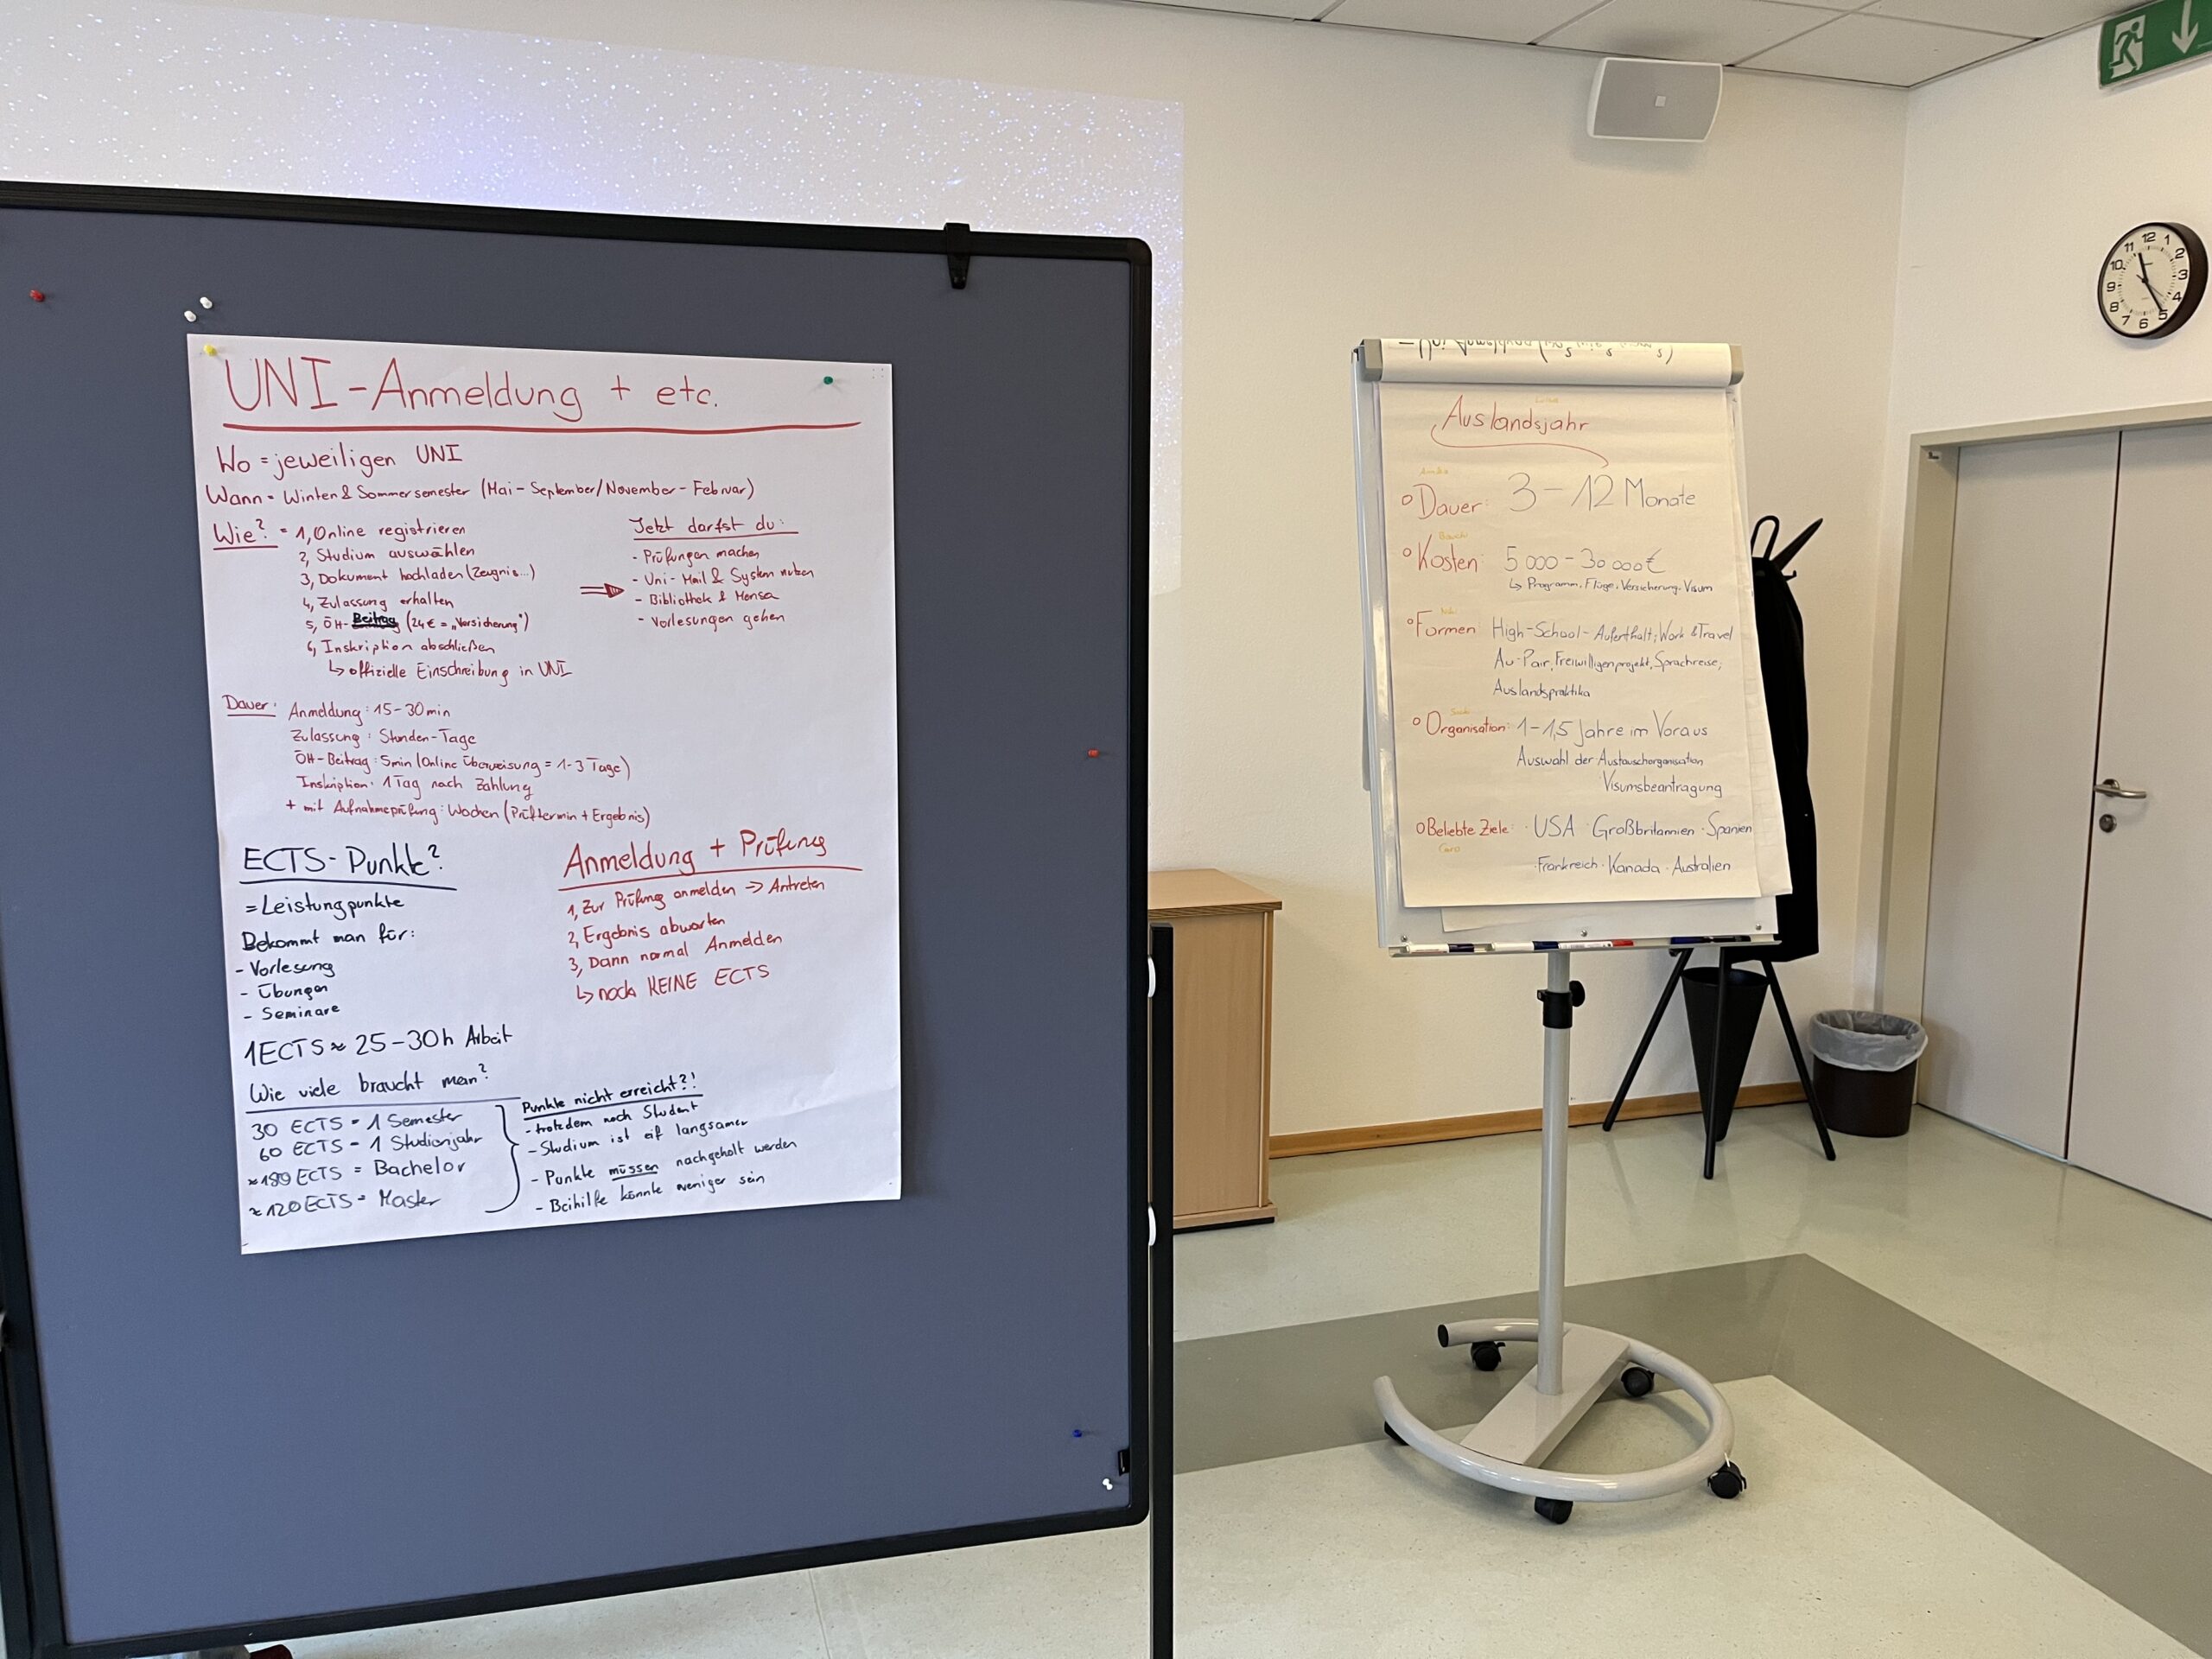 UNI-Anmeldung + etc.
Wo = jeweiligen UNI
Wann = Winter & Sommersemester (Mai - September/November - Februar)
Wie? = 1, Online registrieren
2, Studium auswählen
3, Dokument hochladen (Zeugnis...)
4, Zulassung erhalten
5, ÖH-Beitrag (24€ = „Versicherung")
6, Inskription abschließen
↳ offizielle Einschreibung in UNI
⇒
Jetzt darfst du:
- Prüfungen machen
- Uni-Mail & System nutzen
- Bibliothek & Mensa
- Vorlesungen gehen
Dauer: Anmeldung: 15-30min
Zulassung: Stunden-Tage
ÖH-Beitrag: 5min (Online Überweisung = 1-3 Tage)
Inskription: 1 Tag nach Zahlung
+ mit Aufnahmeprüfung: Wochen (Prüftermin + Ergebnis)
ECTS-Punkte?
= Leistungpunkte
Bekommt man für:
- Vorlesung
- Übungen
- Seminare
1 ECTS ≈ 25-30h Arbeit
Anmeldung + Prüfung
1, Zur Prüfung anmelden -> Antreten
2, Ergebnis abwarten
3, Dann normal Anmelden
↳ noch KEINE ECTS
Wie viele braucht man?
30 ECTS = 1 Semester
60 ECTS = 1 Studienjahr
≈180 ECTS = Bachelor
≈120 ECTS = Master
Punkte nicht erreicht?!
- trotzdem noch Student
- Studium ist langsamer
- Punkte müssen nachgeholt werden
- Beihilfe könnte weniger sein
Auslandsjahr
Dauer: 3-12 Monate
Kosten: 5 000 - 30 000€
↳ Programm, Flüge, Versicherung, Visum
Formen: High-School-Aufenthalt; Work & Travel
Au-Pair, Freiwilligenprojekt, Sprachreise,
Auslandspraktika
Organisation: 1-1,5 Jahre im Voraus
Auswahl der Austauschorganisation
Visumsbeantragung
Beliebte Ziele: · USA · Großbritannien · Spanien
· Frankreich · Kanada · Australien
12
1
2
3
4
5
6
7
8
9
10
11